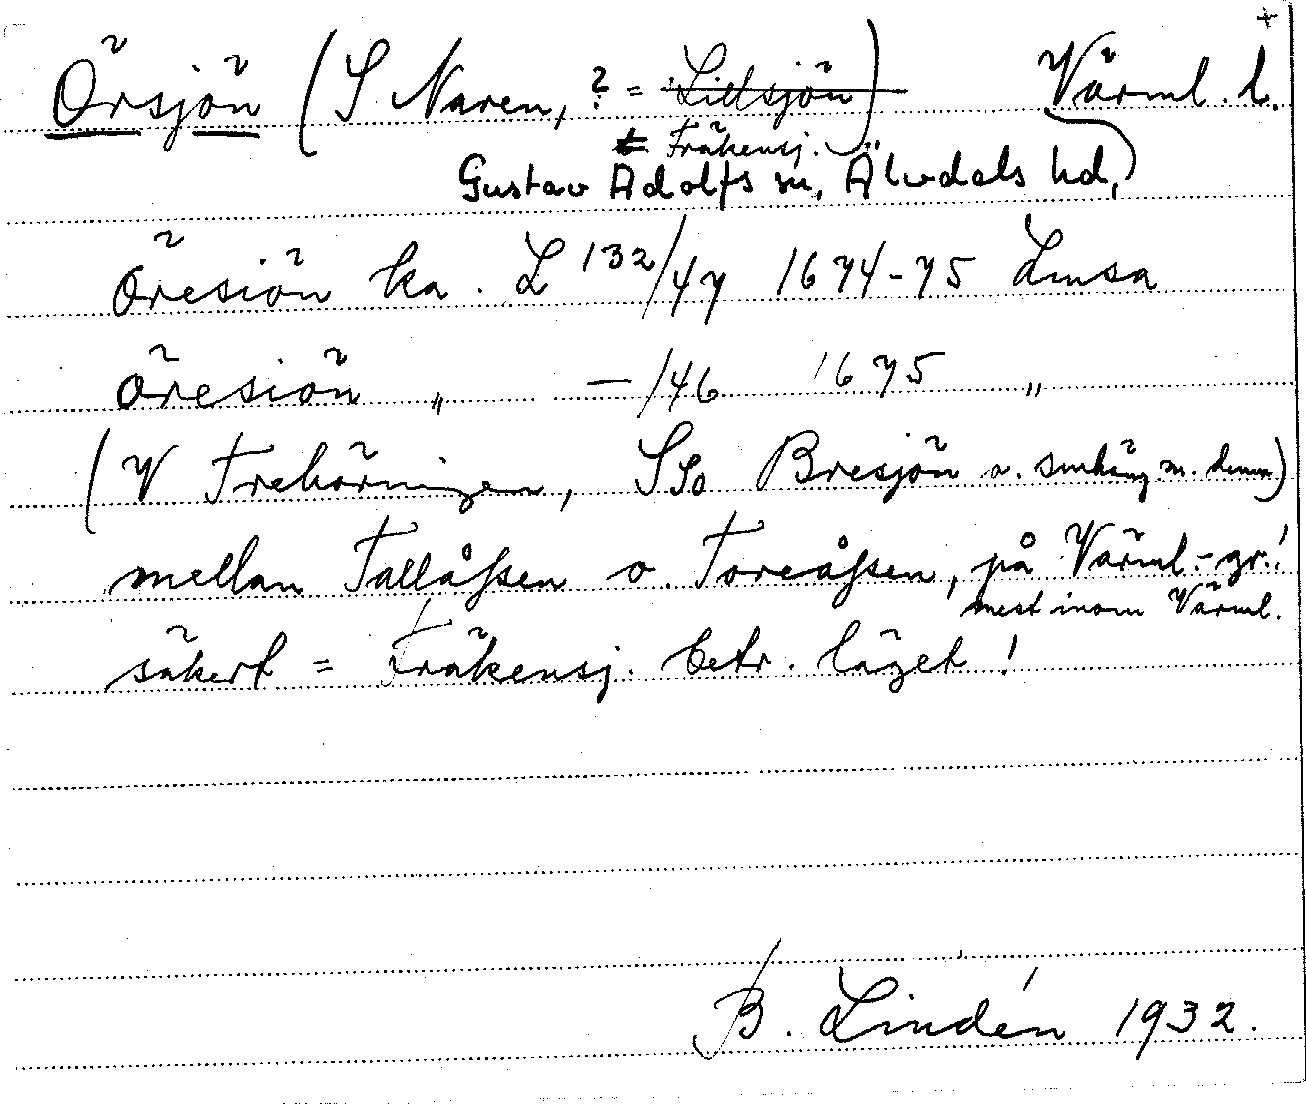 +
Örsjön (S Naren, ? = Lillsjön) Värml. l.
= Fräkensj.
Gustav Adolfs sn, Älvdals hd,
Öresiön ka. L 132/47 1674-75 Lmsa
Öresiön „ — /46 1675 „
(V Trehörningen, SSo Bresjön o. smhäng m. denna)
mellan Tallåssen o. Toreåssen, på Värml.-gr.!
mest inom Värml.
säkert = Fräkensj. betr. läget!
B. Lindén 1932.